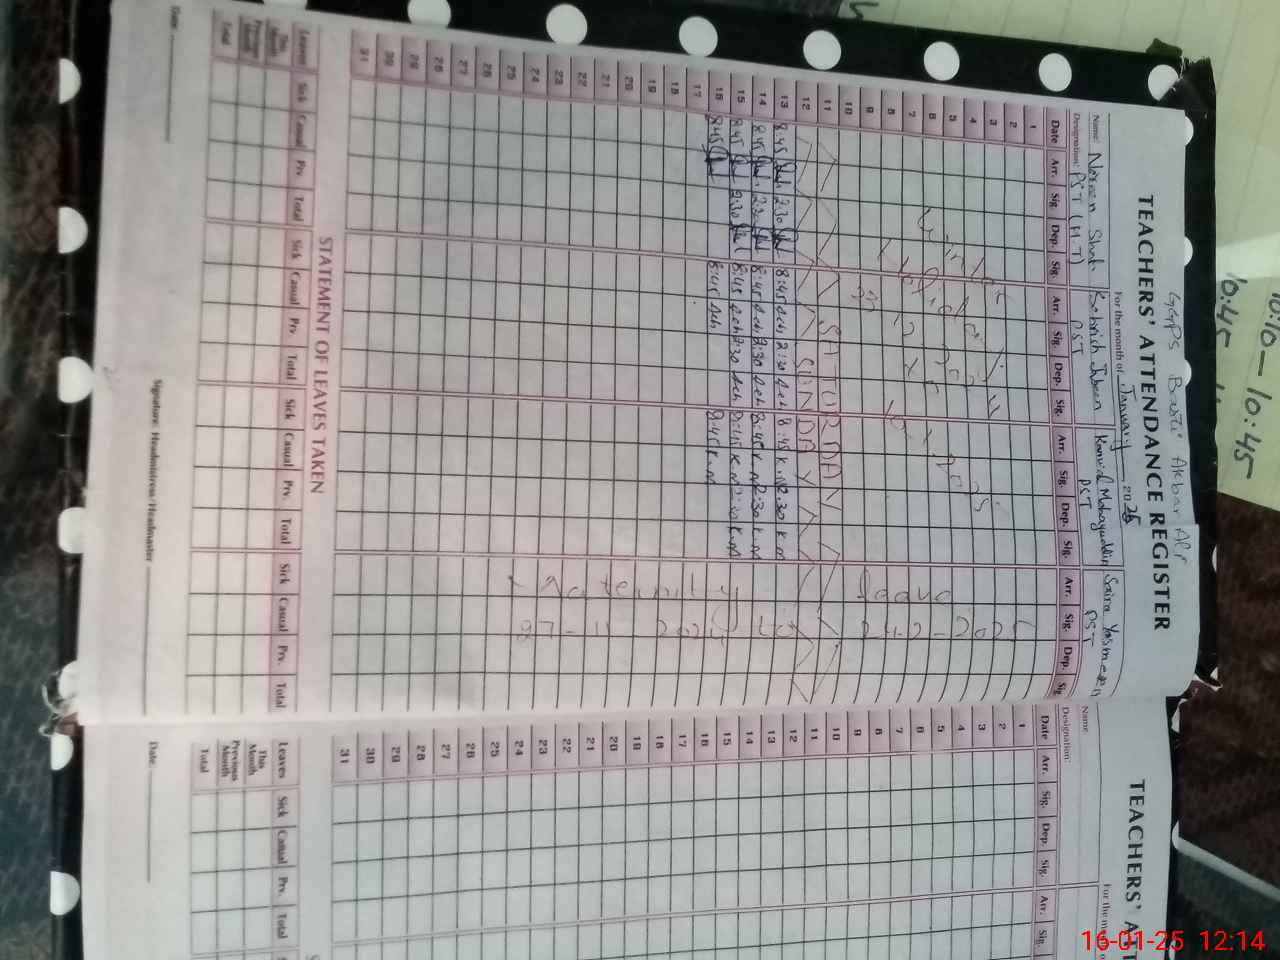 GGPS Basti Akbar Ali
TEACHERS' ATTENDANCE REGISTER
For the month of January 2025
Name: Noreen Shah Sehrish Jabeen Kanwal Mohayuddin Saira Yasmeen
Designation: PST (H.T) PST PST PST
Date Arr. Sig. Dep. Sig. Arr. Sig. Dep. Sig. Arr. Sig. Dep. Sig. Arr. Sig. Dep. Sig
1
2
3
4
5
6
7
8
9
10
Winter
Holidays
11 SATURDAY
12 SUNDAY
13 8:45 2:30 8:45 2:30 8:45 K.N 2:30 K.N
14 8:45 2:30 8:45 2:30 8:45 K.N 2:30 K.N
15 8:45 2:30 8:45 2:30 8:45 K.N 2:30 K.N
16 8:45 8:45 8:45 K.N
17
18
19
20
21
22
23
24
25
26
27
28
29
30
31
Maternity Leave
STATEMENT OF LEAVES TAKEN
Leaves Sick Casual Prv. Total Sick Casual Prv. Total Sick Casual Prv. Total Sick Casual Prv. Total
This Month
Previous Month
Total
Date Signature: Headmistress/Headmaster
TEACHERS' AT
For the m
Name
Designation:
Date Arr. Sig. Dep. Sig. Arr. Sig.
1
2
3
4
5
6
7
8
9
10
11
12
13
14
15
16
17
18
19
20
21
22
23
24
25
26
27
28
29
30
31
Leaves Sick Casual Prv. Total Sick
This Month
Previous Month
Total
Date
10:10 — 10:45
10:45
16-01-25 12:14